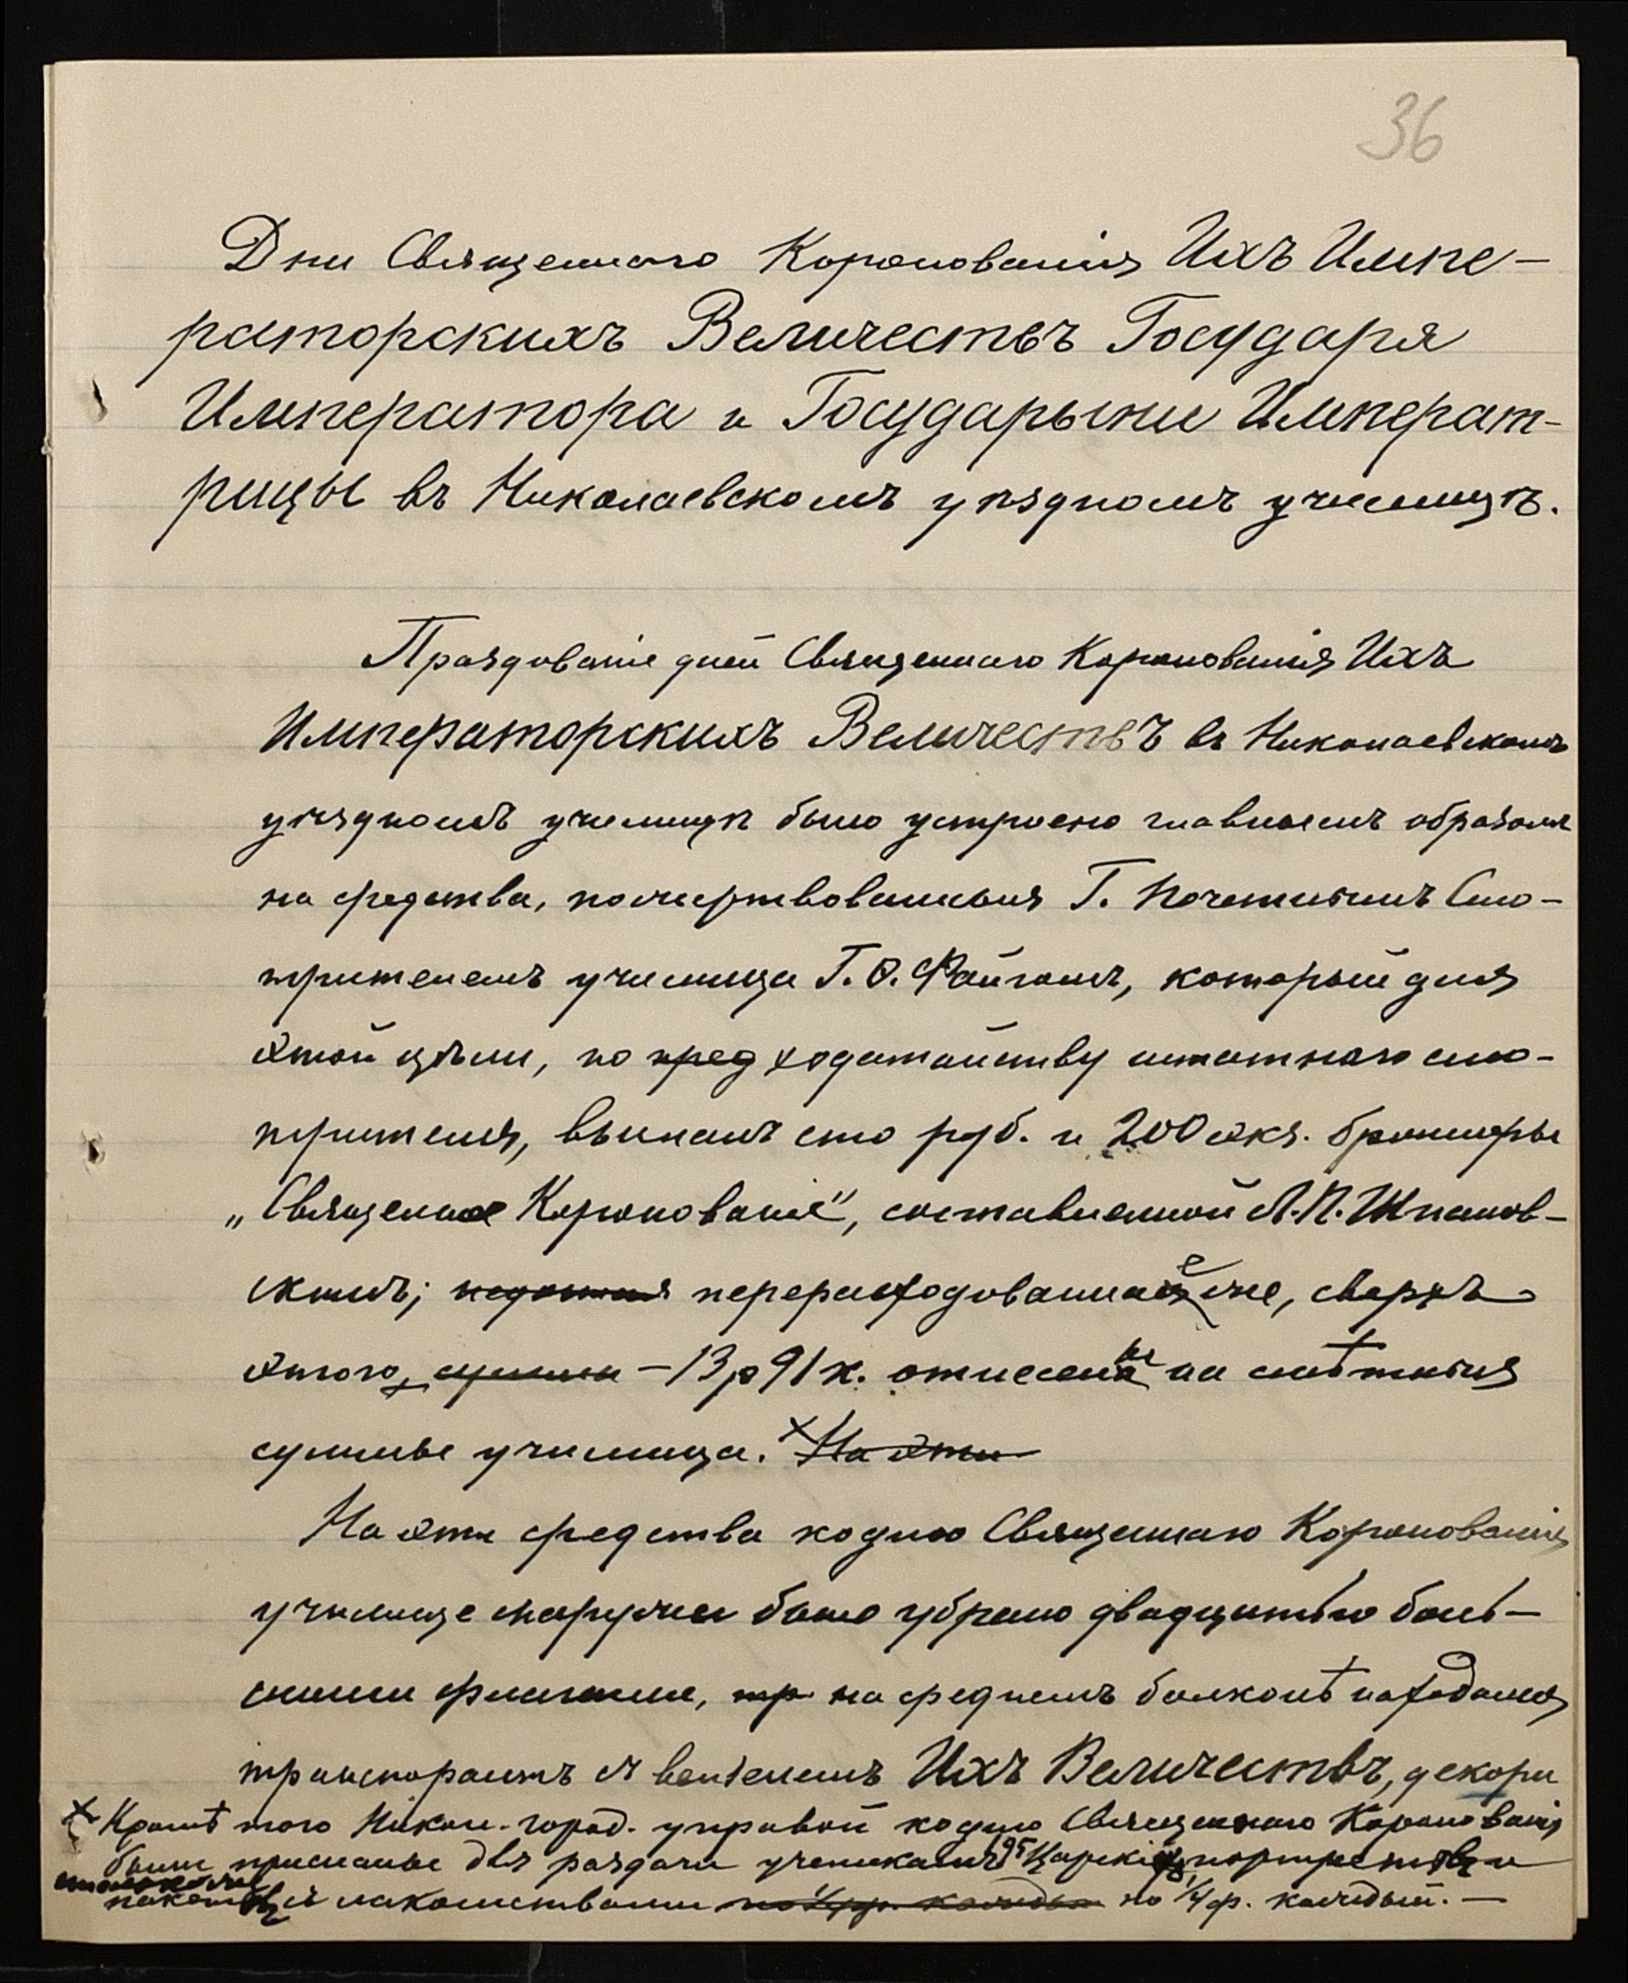 36
Дни Священнаго Коронованія Ихъ Импе-
раторскихъ Величествъ Государя
Императора и Государыни Императ-
рицы въ Николаевскомъ уѣздномъ училищѣ.
Праздованіе дней Священнаго Коронованія Ихъ
Императорскихъ Величествъ въ Николаевскомъ
уѣздномъ училищѣ было устроено главнымъ образомъ
на средства, пожертвованныя Г. Почетнымъ Смо-
трителемъ училища Г. О. Файгомъ, который для
этой цѣли, по пред ходатайству штатнаго смо-
трителя, выслалъ сто руб. и 200 экз. брошюры
„Священное Коронованіе", составленной Л. П. Шпанов-
скимъ; перерасходованные же, сверхъ
этого, суммы – 13 р 91 к. отнесены на смѣтныя
суммы училища. × На эти
На эти средства ко дню Священнаго Коронованія
училище снаружи было убрано двадцатью боль-
шими флагами, тр на среднемъ балконѣ находился
транспорантъ съ вензелемъ Ихъ Величествъ, декори
× Кромѣ того Никол. город. управой ко дню Священнаго Коронованія
были присланы для раздачи ученикамъ 95 Царскихъ портретовъ и
столько же
пакетовъ съ лакомствами по 1/4 ф. каждый по 1/4 ф. каждый. —